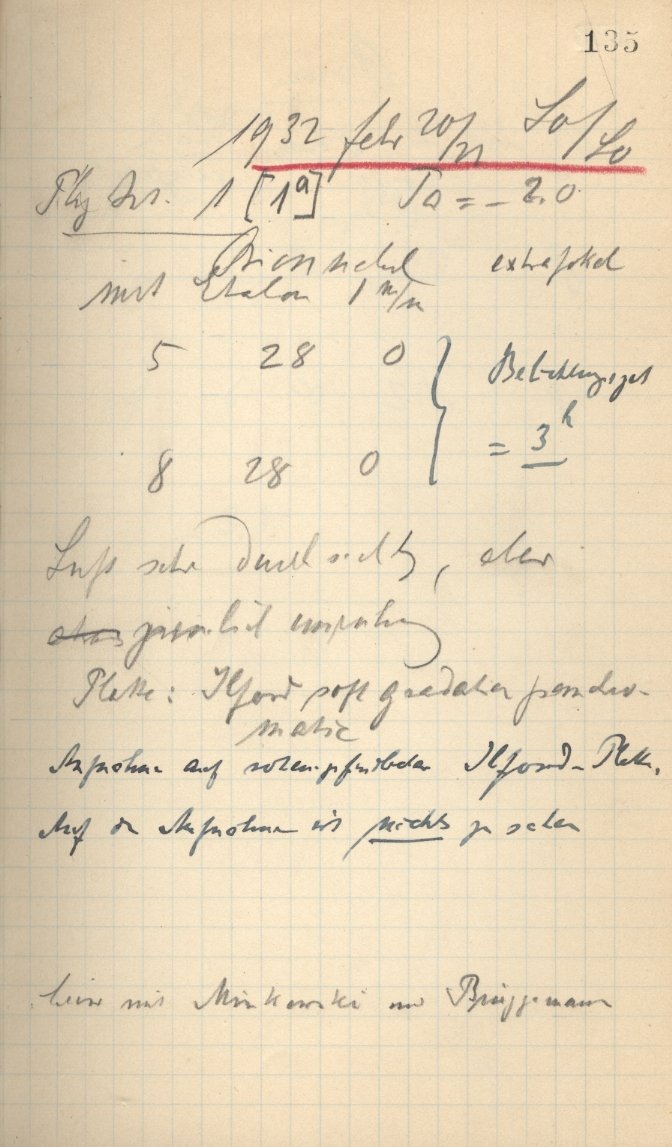 135
1932 febr 20/21 So/So
1 [1a] Ta = - 2.0
Orionnebel extrafokal
mit Etalon 1 m/m
5 28 0 Belichtungszeit
= 3h
8 28 0
Luft sehr durchsichtig, aber
etwas ziemlich unruhig
Platte: Ilford soft gradation panchro-
matic
Aufnahme auf rotempfindlicher Ilford-Platte.
Auf der Aufnahme ist nichts zu sehen
mit Minkowski und Brüggemann